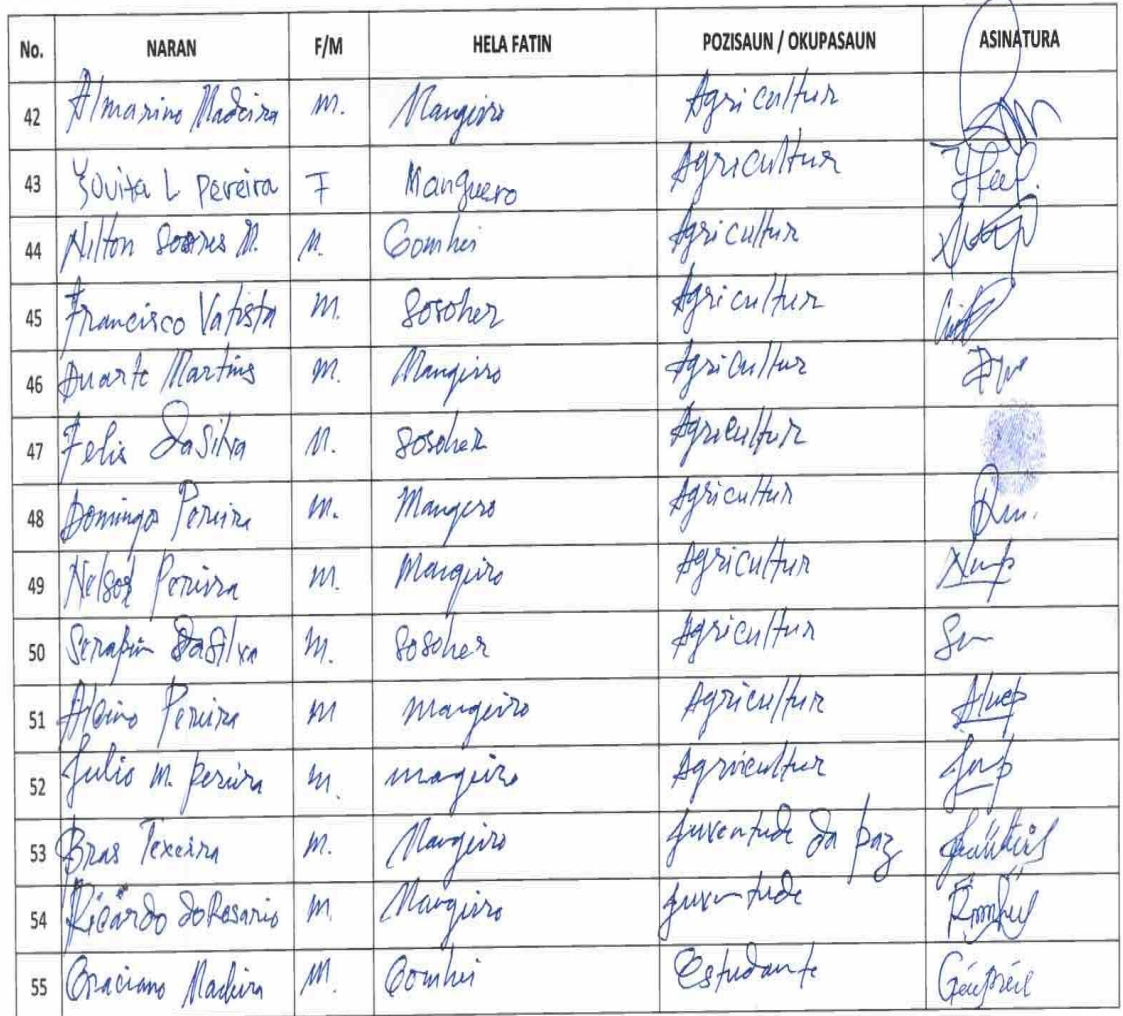 No. NARAN F/M HELA FATIN POZISAUN / OKUPASAUN ASINATURA
42 Almarino Madeira M. Mangeiro Agricultur
43 Jovita L Pereira F Manguero Agricultur
44 Nilton Soares M. M. Comhei Agricultur
45 Francisco Vatista M. Sosoher Agricultur
46 Duarte Martins M. Mangeiro Agricultur
47 Felis Da Silva M. Sosoher Agricultur
48 Domingo Pereira M. Mangero Agricultur
49 Nelson Pereira M. Mangeiro Agricultur
50 Serafin Da Silva M. Sosoher Agricultur
51 Alcino Pereira M Mangeiro Agricultur
52 Julio M. Pereira M. mageiro Agricultur
53 Bras Texeira M. Mangeiro Juventude da paz
54 Ricardo do Rosario M. Mangeiro Juventude
55 Graciano Madeira M. Comhei Estudante